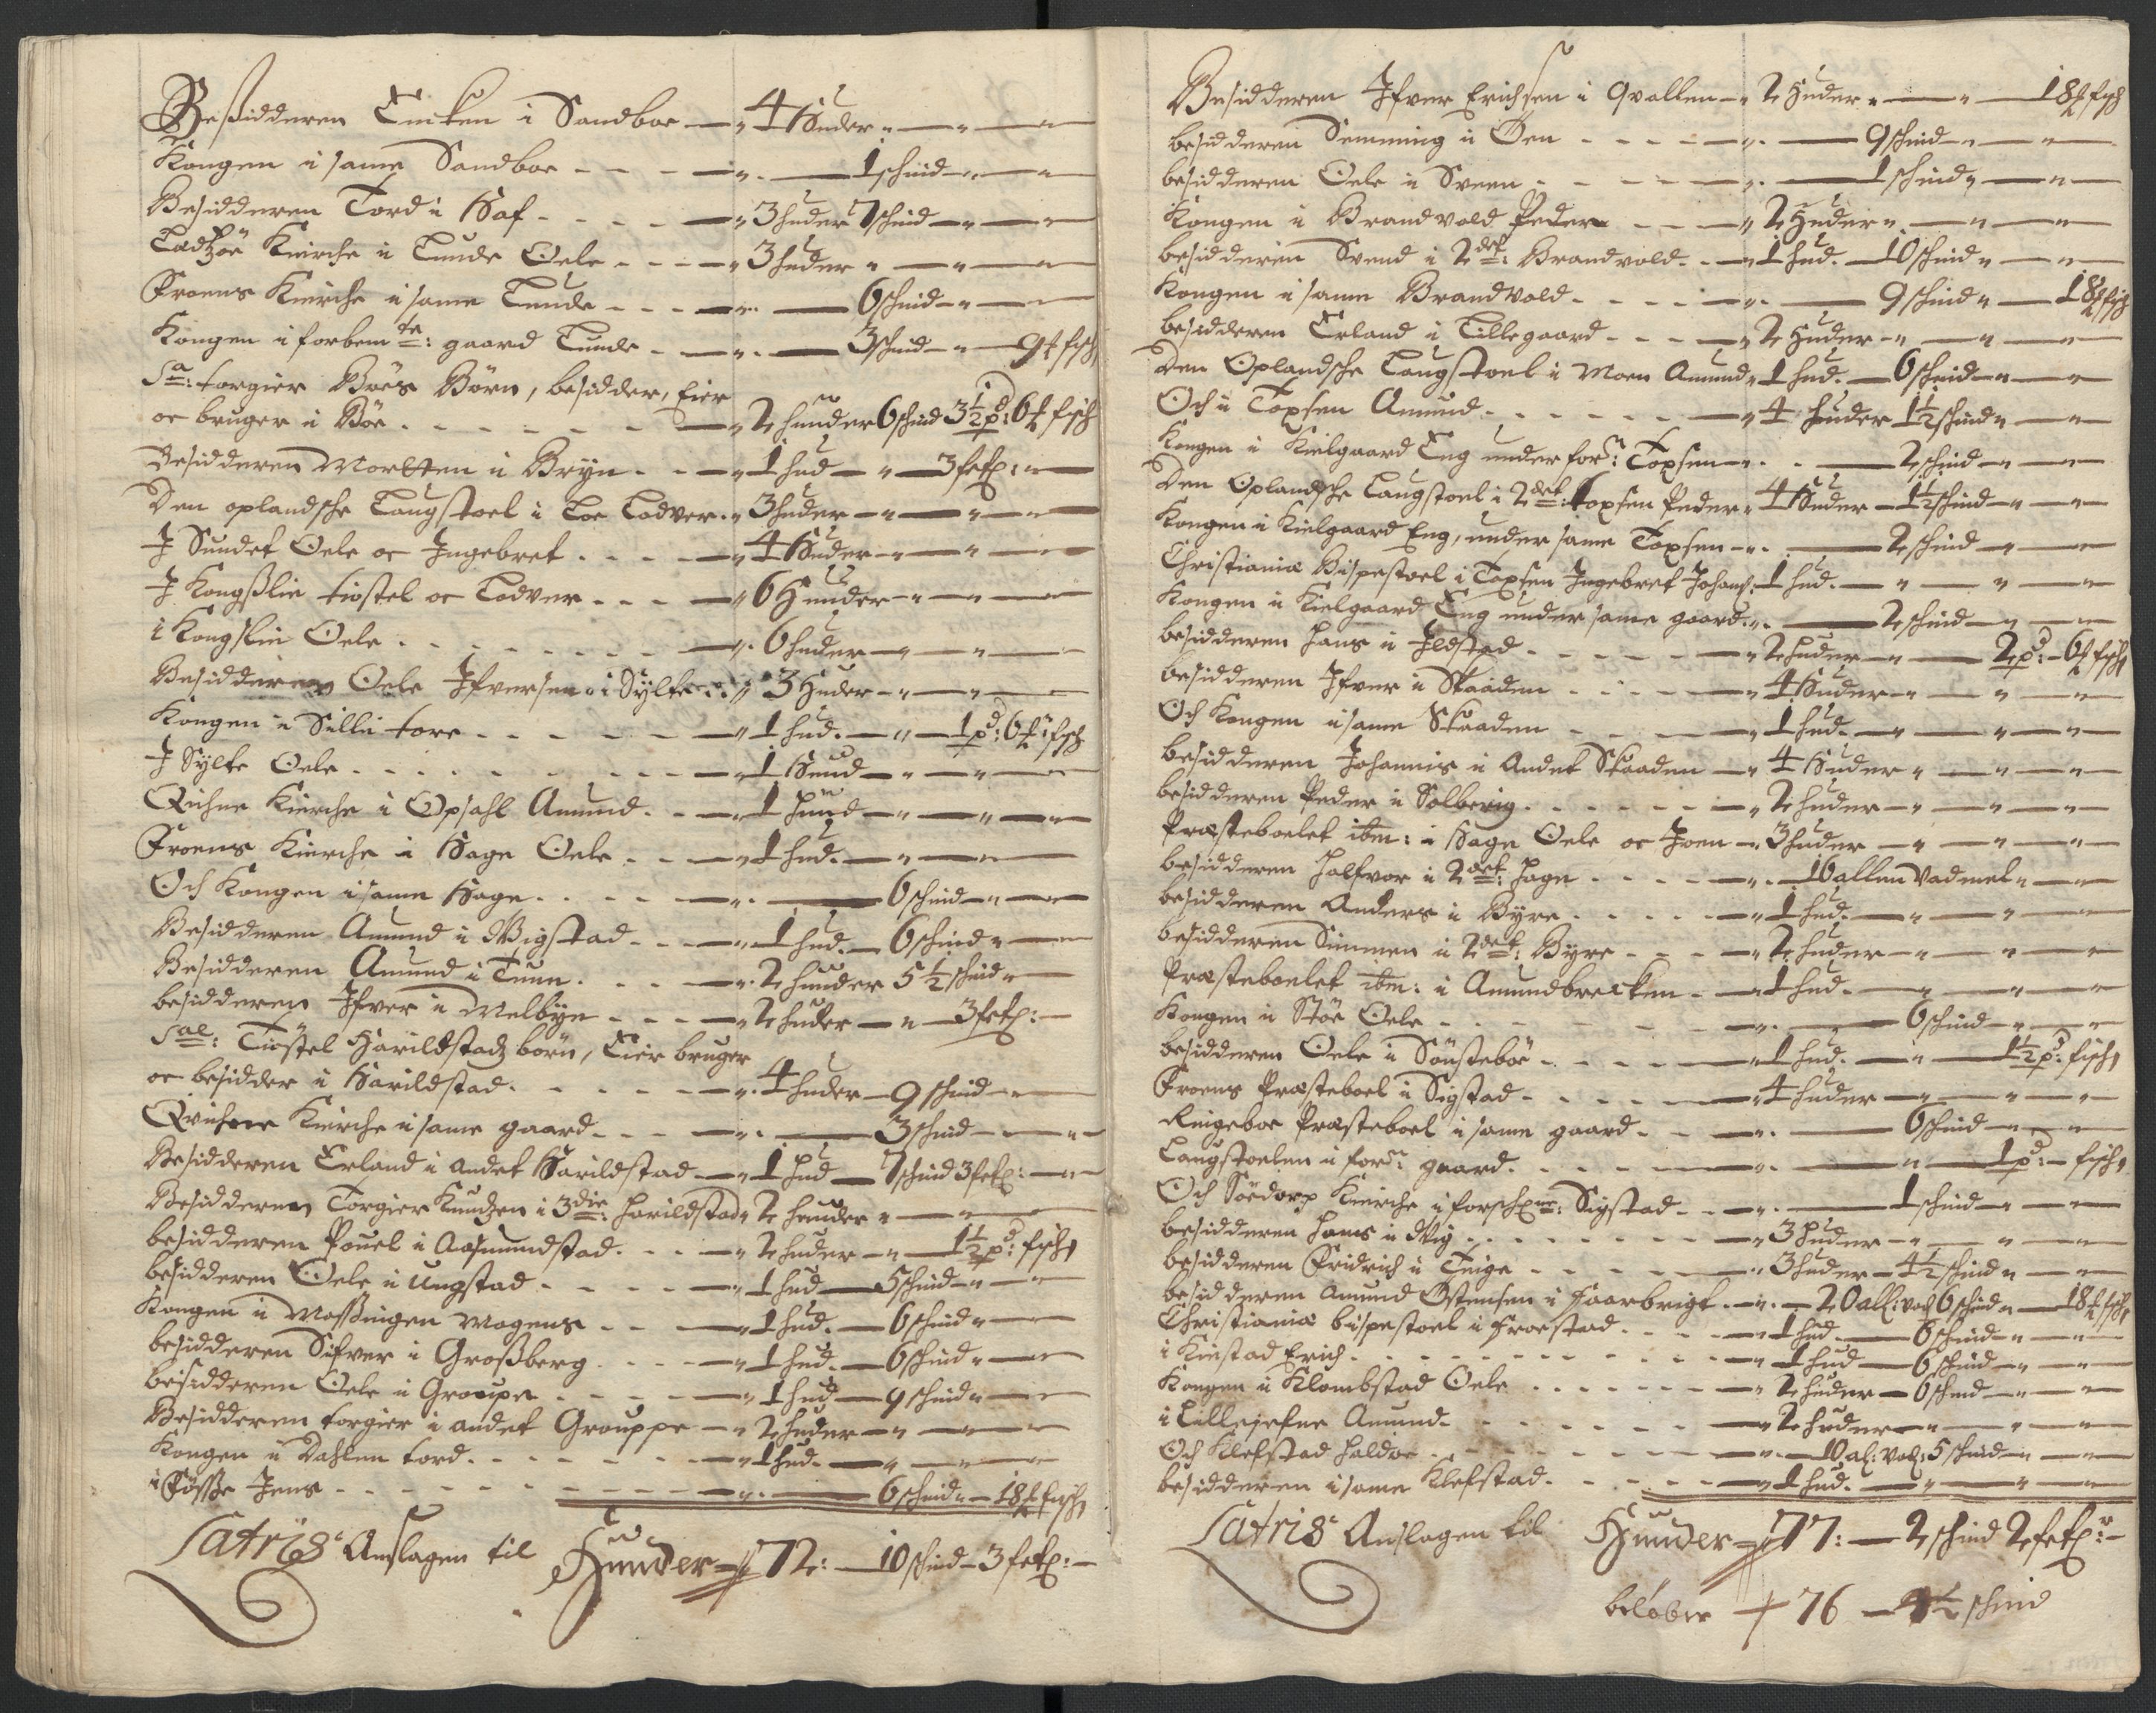 Besidderen Encken i Sandboe — 4 Huder
Kongen i same Sandboe — 1 schind
Besidderen Tord i Haf — 3 huder 7 schind
Kirche i Lunde Oele — 3 huder
Froens Kirche i same Lunde — 6 schind
Kongen i forbemte: gaard Lunde — 3 schind — 9 ℔ fisch
Sa: torgier Böes Börn, besidder, Eier
oc bruger i Böe — 2 hunder 6 schind 3½ pd: 6 ℔ fisch
Besidderen Mortten i Bryn — 1 hud — 3 setß:
Den oplandsche Laugstoel i Loe Lodver — 3 huder
J Sundet Oele oc Ingebret — 4 Huder
J Kongßlie tiostel oc Lodver — 6 Hunder
i Kongslie Oele — 6 huder
Besidderen Oele Ifversen i Sylte — 3 Huder
Kongen i Sille tore — 1 hud. — 1 pd: 6 ℔: fisch
J Sylte Oele — 1 Hud
Qvihne Kirche i Opsahl Amund — 1 hund
Froens Kirche i Hage Oele — 1 hud.
Och Kongen i same Hage — 6 schind
Besidderen Amund i Wigstad — 1 hud. 6 schind
Besidderen Amund i Tuun — 2 hunder 5½ schind
besidderen Ifver i Melbye — 2 huder — 3 setß:
Sal: Tiöstel Harildstadz börn, Eier bruger
oc besidder i Harildstad — 4 huder — 9 schind
Qvihne Kirche i same gaard — 3 schind
Besidderen Erland i andet Harildstad — 1 hud — 7 schind 3 setß:
Besidderen Torgier Knudzen i 3die: harildstad 2 hunder
besidderen Pouel i Aasmundstad — 2 huder — 1½ pd: fisch
besidderen Oele i Ungstad — 1 hud — 5 schind
Kongen i Moßingen Mogens — 1 hud. — 6 schind
besidderen Sifver i Großberg — 1 hud. — 6 schind
besidderen Oele i Groupe — 1 hud — 9 schind
Besidderen torgier i andet Grouppe — 2 huder
Kongen i Dahlen tord — 1 hud.
i Foße Jens — 6 schind — 18 ℔ fisch
Latris Anslagen til Hunder — 72: — 10 schind — 3 setß:
Besidderen Ifver Erichsen i Qvallen — 2 Huder — 18 ℔ fisch
besidderen Simming i Öen — 9 schind
besidderen Oele i Sveen — 1 schind
Kongen i Brandvold Peder — 2 Huder
besidderen Svend i 2det: Brandvold — 1 hud. — 10 schind
Kongen i same Brandvold — 9 schind — 18 ℔ fisch
besidderen Erland i Lillegaard — 2 Huder
Den Oplandsche Laugstoel i Moen Amund 1 hud. — 6 schind
Och i Toxsen Amund — 4 huder 1½ schind
Kongen i Kielgaard Eng under forn: Toxsen — 2 schind
Den Oplandsche Laugstoel i 2det: toxsen Peder 4 Huder — 1½ schind
Kongen i Kielgaard Eng, under same Toxsen — 2 schind
Christianiæ Bispestoel i Toxsen Ingebret Johans: 1 hud.
Kongen i Kielgaard Eng under same gaard — 2 schind
besidderen hans i Ildstad — 2 huder — 2 pd: — 6 ℔ fisch
besidderen Ifver i Skaaden — 4 Huder
Och Kongen i same Skaaden — 1 hud.
besidderen Johannis i Andet Skaaden — 4 Huder
besidderen Peder i Solberig — 2 huder
Præsteboelet ibm: i Hage Oele oc Joen — 3 huder
besidderen halfvor i 2det: hage — 16 allen Vadmel
besidderen Anders i Byre — 1 hud.
besidderen Simmen i 2det: Byre — 2 huder
Præsteboelet ibm: i Amundbrecken — 1 hud.
Kongen i Stöe Oele — 6 schind
besidderen Oele i Sönsteböe — 1 hud. — 1½ pd: fisch
Froens Præsteboel i Sigstad — 4 huder
Ringeboe Præsteboel i same gaard — 6 schind
Laugstoelen i forn: gaard — 1 pd: fisch
Och Södorp Kirche i forschrne: Sigstad — 1 schind
besidderen hans i Viig — 3 huder
besidderen Fridrich i Teige — 3 huder — 4½ schind
besidderen Amund Östensen i Faarbrigt — 20 all: vad 6 schind — 18 ℔ fisch
Christianiæ bispestoel i Froestad — 1 hud. — 6 schind
i Kiestad Erich — 1 hud — 6 schind
Kongen i Klombstad Oele — 2 huder — 6 schind
i Lillejefne Amund — 2 huder
Och Klefstad haldor — 10 al: vad: 5 schind
besidderen i same Klefstad — 1 hud.
Latris Anslagen til Hunder — 77: — 2 schind 2 setß:
beløber — 76 — 4½ schind